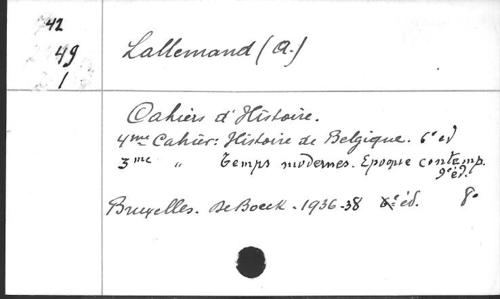 42
49
1
Lallemand (A.)
Cahiers d'Histoire.
4me Cahier: Histoire de Belgique. 6e éd
3me " Temps modernes. Epoque contemp.
9e éd.
Bruxelles. De Boeck. - 1936-38 éd. 8o